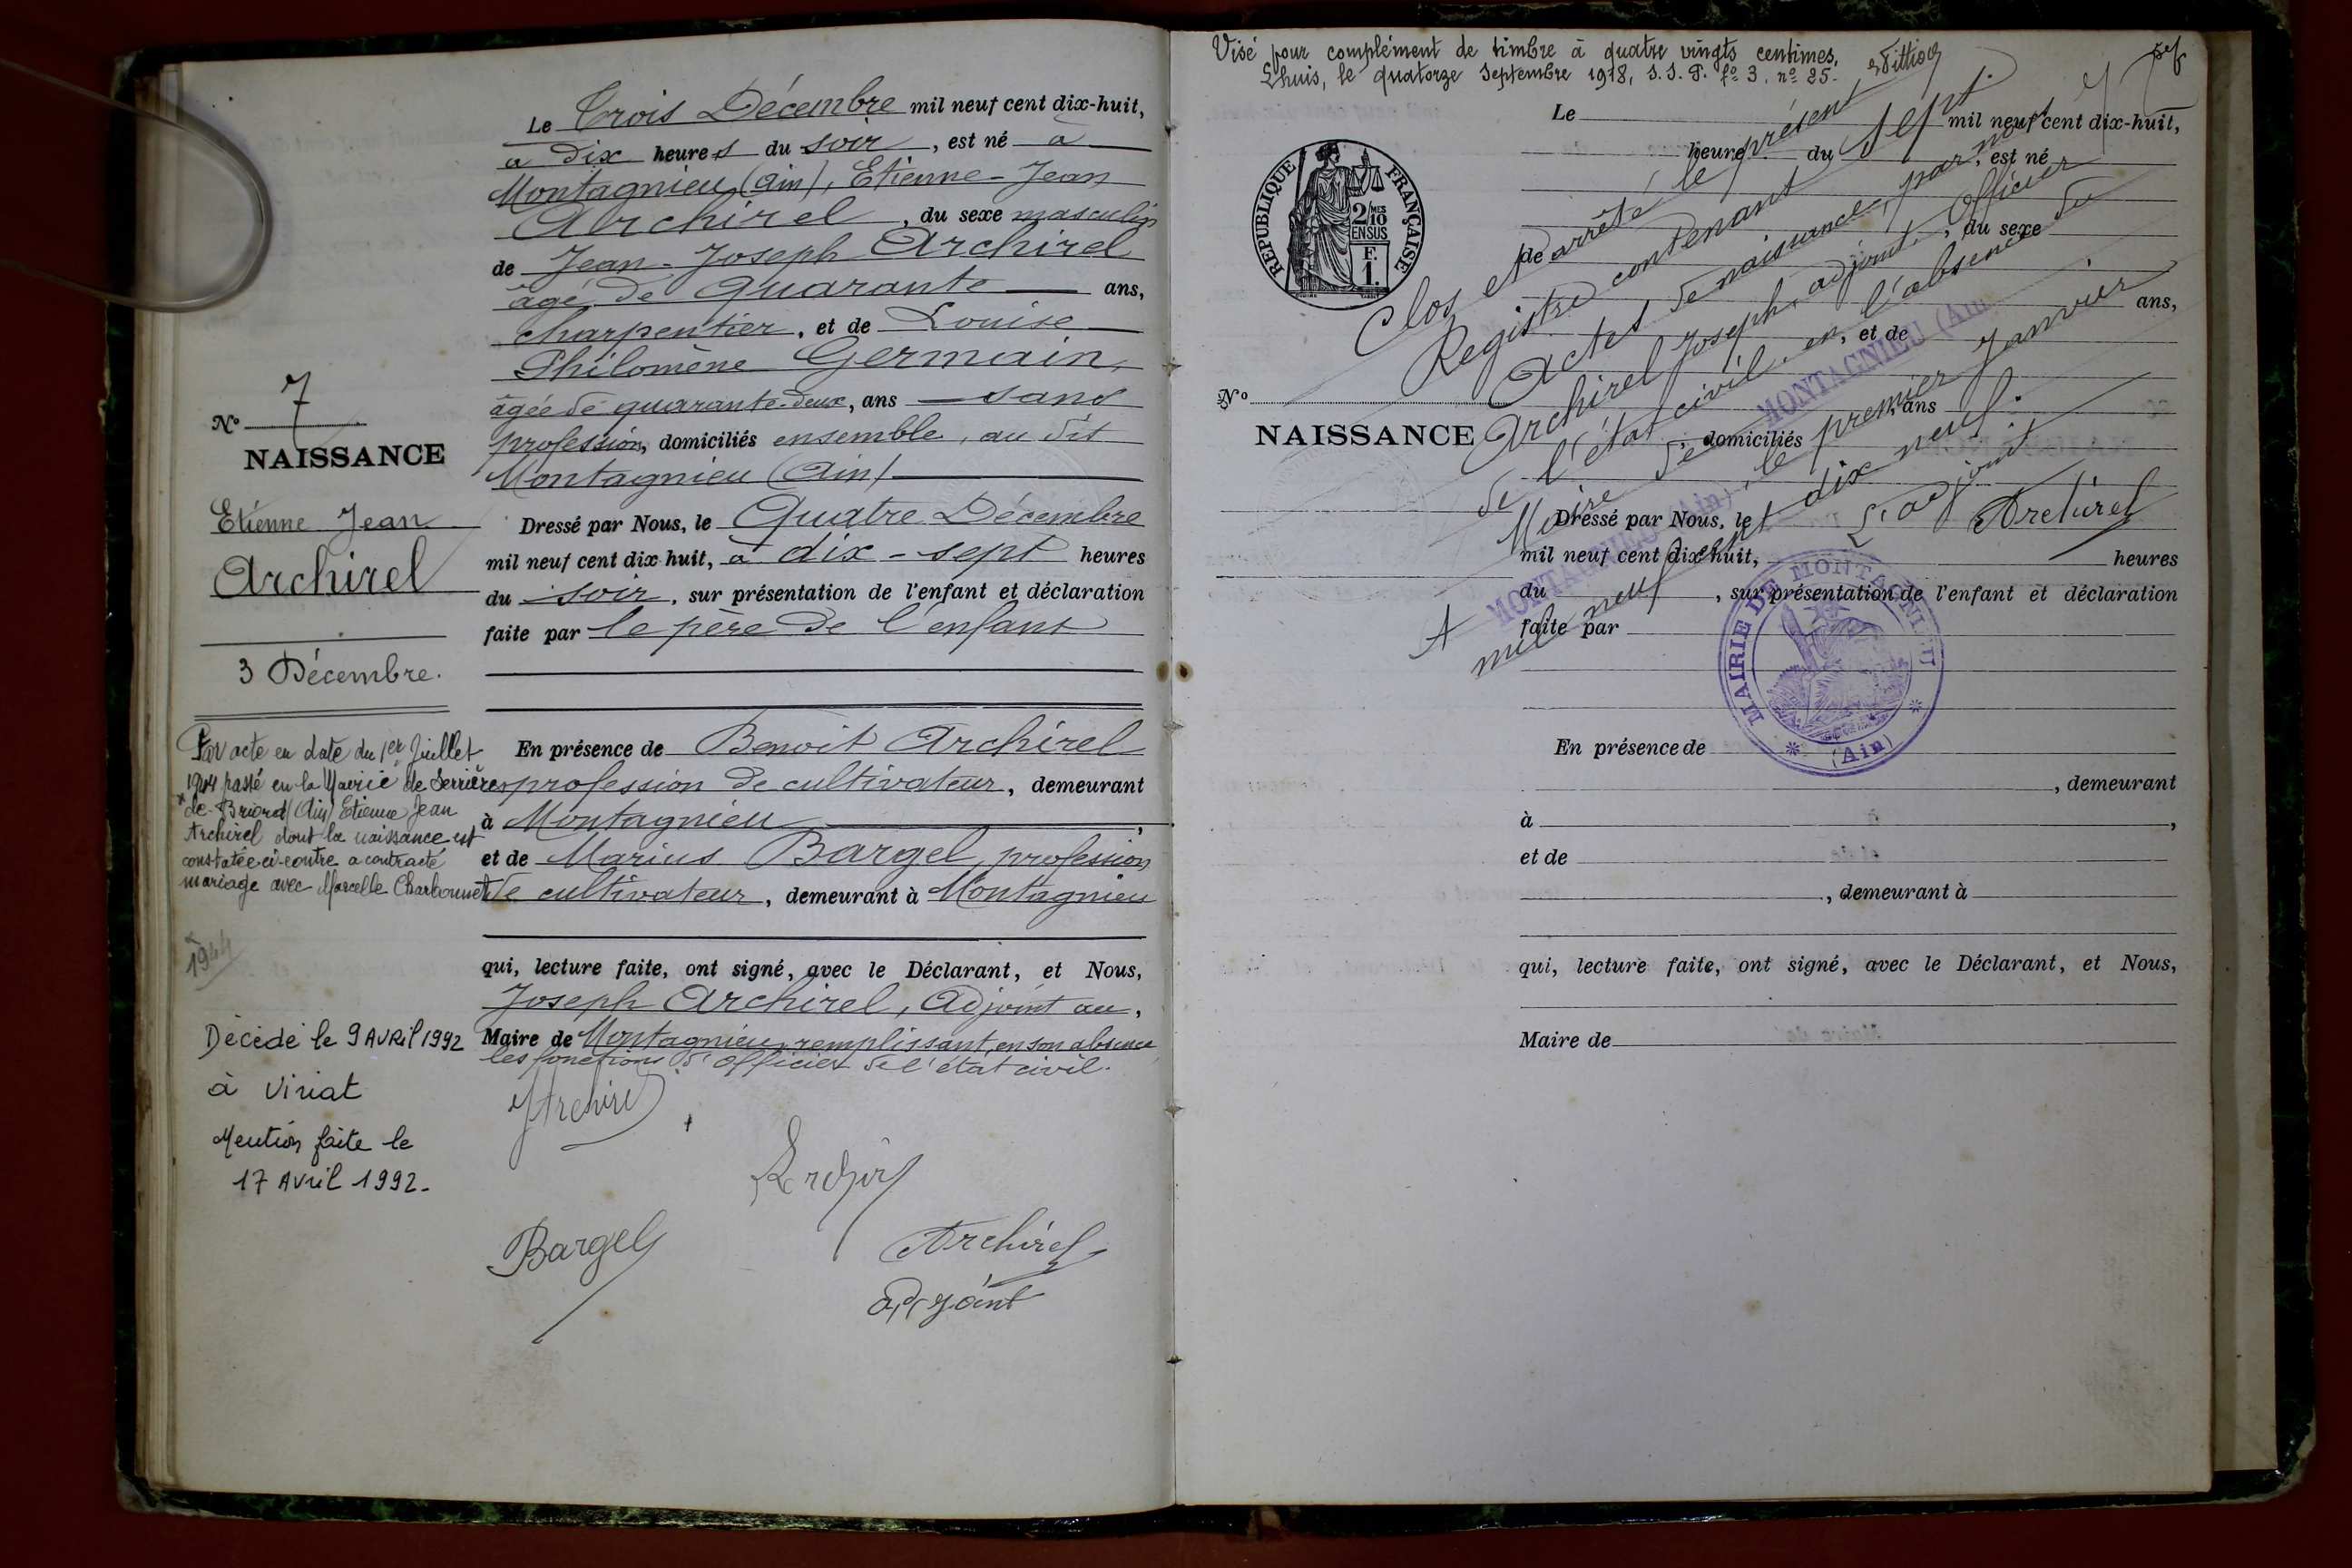 Le Trois Décembre mil neuf cent dix-huit,
à dix heures du soir, est né à
Montagnieu (Ain), Etienne-Jean
Archirel, du sexe masculin
de Jean-Joseph Archirel
âgé de Quarante ans,
charpentier, et de Louise
Philomène Germain,
âgée de quarante-deux, ans sans
profession, domiciliés ensemble, au dit
Montagnieu (Ain)
Nº 7
NAISSANCE
Etienne Jean
Archirel
3 Décembre.
Dressé par Nous, le Quatre Décembre
mil neuf cent dix huit, à dix-sept heures
du soir, sur présentation de l'enfant et déclaration
faite par le père de l'enfant
En présence de Benoit Archirel
profession de cultivateur, demeurant
à Montagnieu,
et de Marius Bargel, profession
de cultivateur, demeurant à Montagnieu
qui, lecture faite, ont signé, avec le Déclarant, et Nous,
Joseph Archirel, Adjoint au,
Maire de Montagnieu, remplissant en son absence
les fonctions d'Officier de l'état civil.
Par acte en date du 1er Juillet
passé en la Mairie de Serrières
de-Briord (Ain) Etienne Jean
Archirel dont la naissance est
constatée ci-contre a contracté
mariage avec Marcelle Charbonnet
1944
Décédé le 9 AVRil 1992
à Viriat
Mention faite le
17 Avril 1992.
Archirel
Bargel
Archirel
adjoint
Visé pour complément de timbre à quatre vingts centimes.
Lhuis, le quatorze Septembre 1918, S. S. P. fº 3. nº 25.
REPUBLIQUE FRANÇAISE
2/10 MES
EN SUS
F.
1.
Le mil neuf cent dix-huit,
heure du , est né
, du sexe
de
ans,
, et de
Nº
, ans
NAISSANCE
, domiciliés
Dressé par Nous, le
mil neuf cent dix huit, heures
du , sur présentation de l'enfant et déclaration
faite par
En présence de
, demeurant
à ,
et de
, demeurant à
qui, lecture faite, ont signé, avec le Déclarant, et Nous,
Maire de
Clos et arrêté le présent
Registre contenant sept
Actes de naissance, par nous
Archirel Joseph, adjoint Officier
de l'état civil en l'absence du
Maire de
MONTAGNIEU (Ain)
A MONTAGNIEU (Ain), le premier Janvier
mil neuf cent dix neuf.
L'adjoint
Archirel
MAIRIE DE MONTAGNIEU
(Ain)